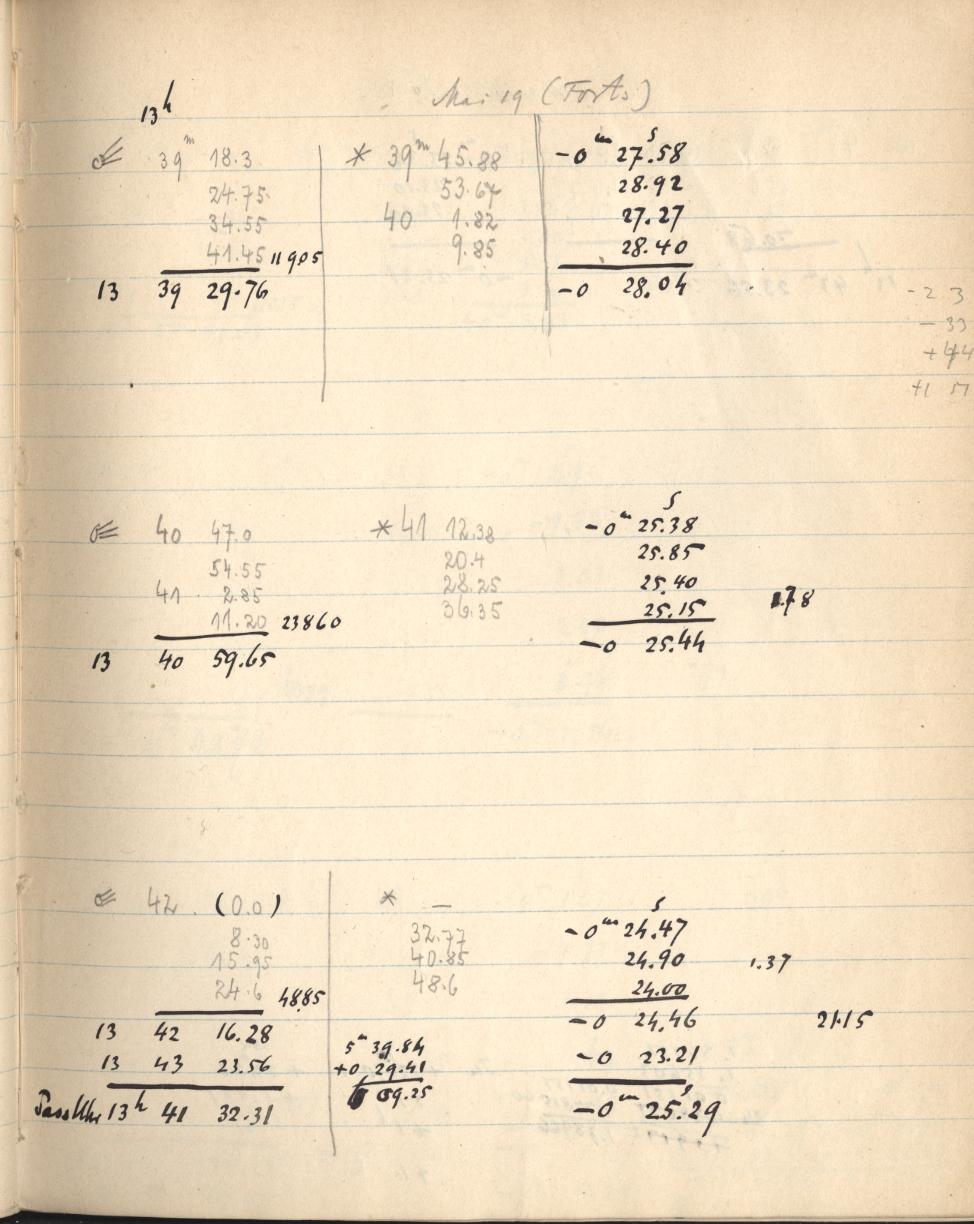 Mai 19 (Forts)
13h
39m 18.3 * 39m 45.88 -0m 27.58s
24.75 53.67 28.92
34.55 40 1.82 27.27
41.45 11905 9.85 28.40
13 39 29.76 -0 28.04
-2 3
-33
+44
+1 51
40 47.0 * 41 12.38 -0m 25.38s
54.55 20.4 25.85
41 2.85 28.25 25.40
11.20 23860 36.35 25.15 1.78
13 40 59.65 -0 25.44
42 (0.0) * — -0m 24.47s
8.30 32.77 24.90 1.37
15.95 40.85 24.00
24.6 4885 48.6
13 42 16.28 -0 24.46 21.15
13 43 23.56 5m 39.84 -0 23.21
+0 29.41
13h 41 32.31 69.25 -0m 25.29s